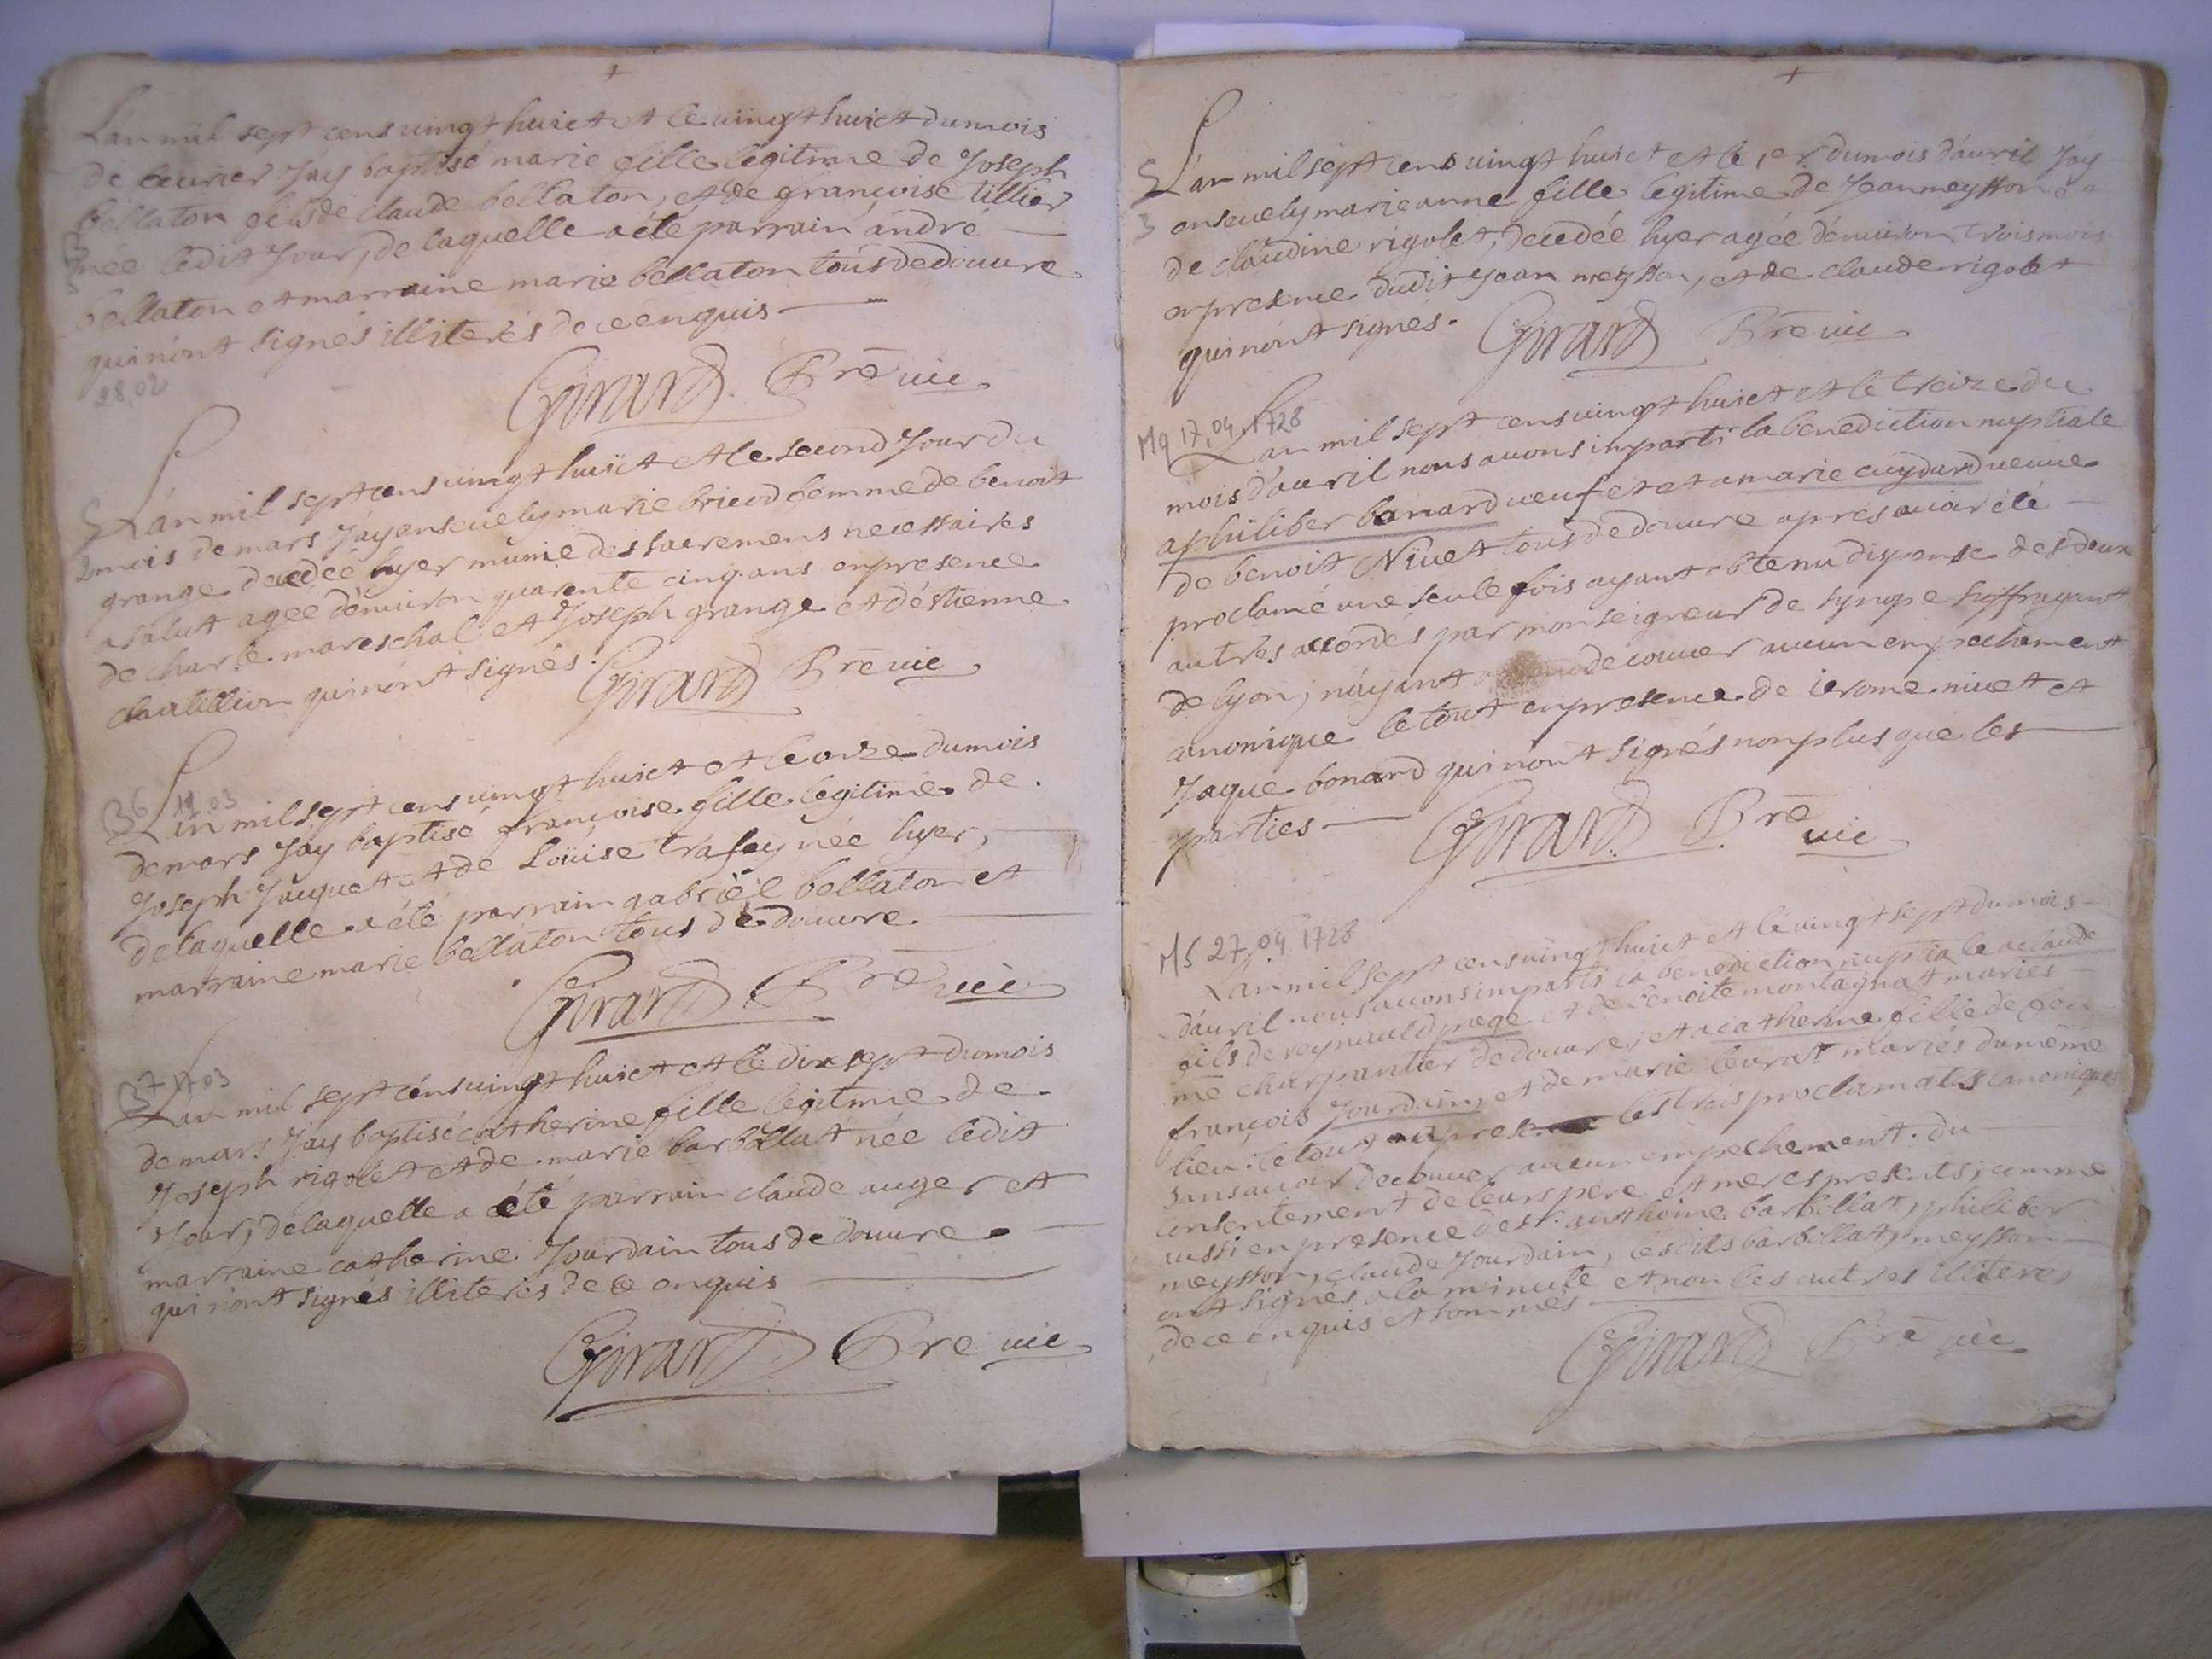 +
Lan mil sept cens uingt huict et le uingt huict du mois
de feurier Jáy baptisé marie fille legitime de Joseph
bellaton fils de claude bellaton, et de françoise tillier
née ledit Jour, de laquelle a été parrain andré
bellaton et marraine marie bellaton tous de douure
qui nónt signés illiterés de ce enquis
28.02
Girard Prē uic
L'án mil sept cens uingt huict et le second Jour du
S 2 mois de mars Jáy enseuely marie brieud femme de benoit
grange decedée hyer munie des sacremens necessaires
a salut agée dénuiron quarente cinq ans en presence
de charle mareschal et Joseph grange et déstienne
chatillion qui nónt signés. Girard Prē uic
B6 11.03
L'an mil sept cens uingt huict et le onze du mois
de mars Jáy baptisé françoise fille legitime de
Joseph Jauquet et de Loüise trafay née hyer,
de laquelle a été parrain gabriel bellaton et
marraine marie bellaton tous de douure.
Girard Prē uic
B7 17.03
L'án mil sept cens uingt huict et le dix sept du mois
de mars Jáy baptisé catherine fille legitime de
Joseph rigolet et de marie barbollat née ledit
Jour, de laquelle a été parrain claude auger et
marraine catherine Jourdain tous de douure
qui nónt signés illiterés de ce enquis
Girard Pre uic
+
S L'án mil sept cens uingt huict et le 1er du mois dáuril Jáy
3 enseuely marie anne fille legitime de Jean meysson et
de claudine rigolet, decedée hyer agée dénuiron trois mois
en presence dudit Jean meysson, et de claude rigolet
qui nónt signés. Girard Prē uic
M9 17.04.1728
L'an mil sept cens uingt huict et le treize du
mois dáuril nous auons imparti la benediction nuptiale
a philiber bonard ueuf et et a marie cuydard ueuue
de benoit Niuet tous de douure apres auoir été
proclamé une seule fois ayant obtenu dispense des deux
autres accordés par monseigneur de synope suffragant
de lyon, náyant decouuer aucun enpechement
canonique le tout en presence de ierome niuet et
Jaque bonard qui nónt signés non plus que les
parties Girard Prē
uic
M5 27.04.1728
L'an mil sept cens uingt huict et le uingt sept du mois
dáuril nous auons imparti la benediction nuptiale a claude
fils de reynauld pege et de benoite montagnat mariés
me charpantier de douure et a catherine fille de feu
françois Jourdain, et de marie leurat mariés du méme
lieu: le tout apres les trois proclamat͞s canoniques
sans auoir decouuer aucun empechement. du
consentement de leurs père et meres presents; comme
aussi en presence des s.r anthoine barbollat, philiber
meysson, claude Jourdain, lesdits barbollat, meysson
ont signés a la minute et non les autres illiterés
de ce enquis et sommés
Girard Prē uic